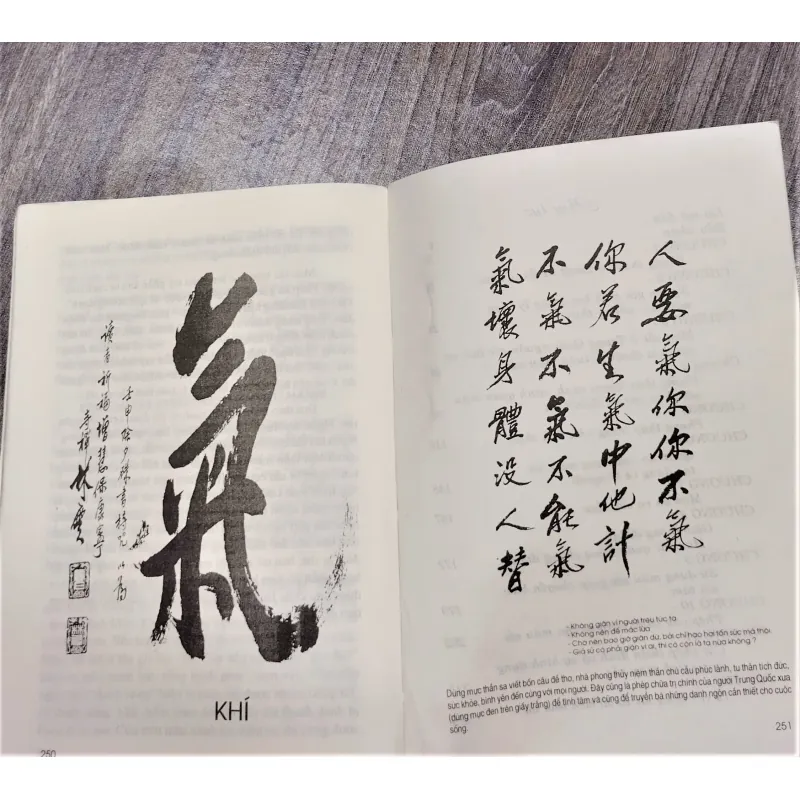 氣
壬申除夕硃書持咒以為
讀者祈福增慧保康寧
林雲
KHÍ
250
人要氣你你不氣
你若生氣中他計
不氣不氣不能氣
氣壞身體没人替
- Không giận vì người trêu tức ta
- Không nên để mắc lừa
- Chớ nên bao giờ giận dữ, bởi chỉ hao hơi tổn sức mà thôi.
- Giả sử cứ phải giận vì ai, thì có còn là ta nữa không ?
Dùng mực thần sa viết bốn câu đề thơ, nhà phong thủy niệm thần chú cầu phúc lành, tu thân tích đức,
sức khỏe, bình yên đến cùng với mọi người. Đây cũng là phép chữa trị chính của người Trung Quốc xưa
(dùng mực đen trên giấy trắng) để tịnh tâm và cũng để truyền bá những danh ngôn cần thiết cho cuộc
sống.
251